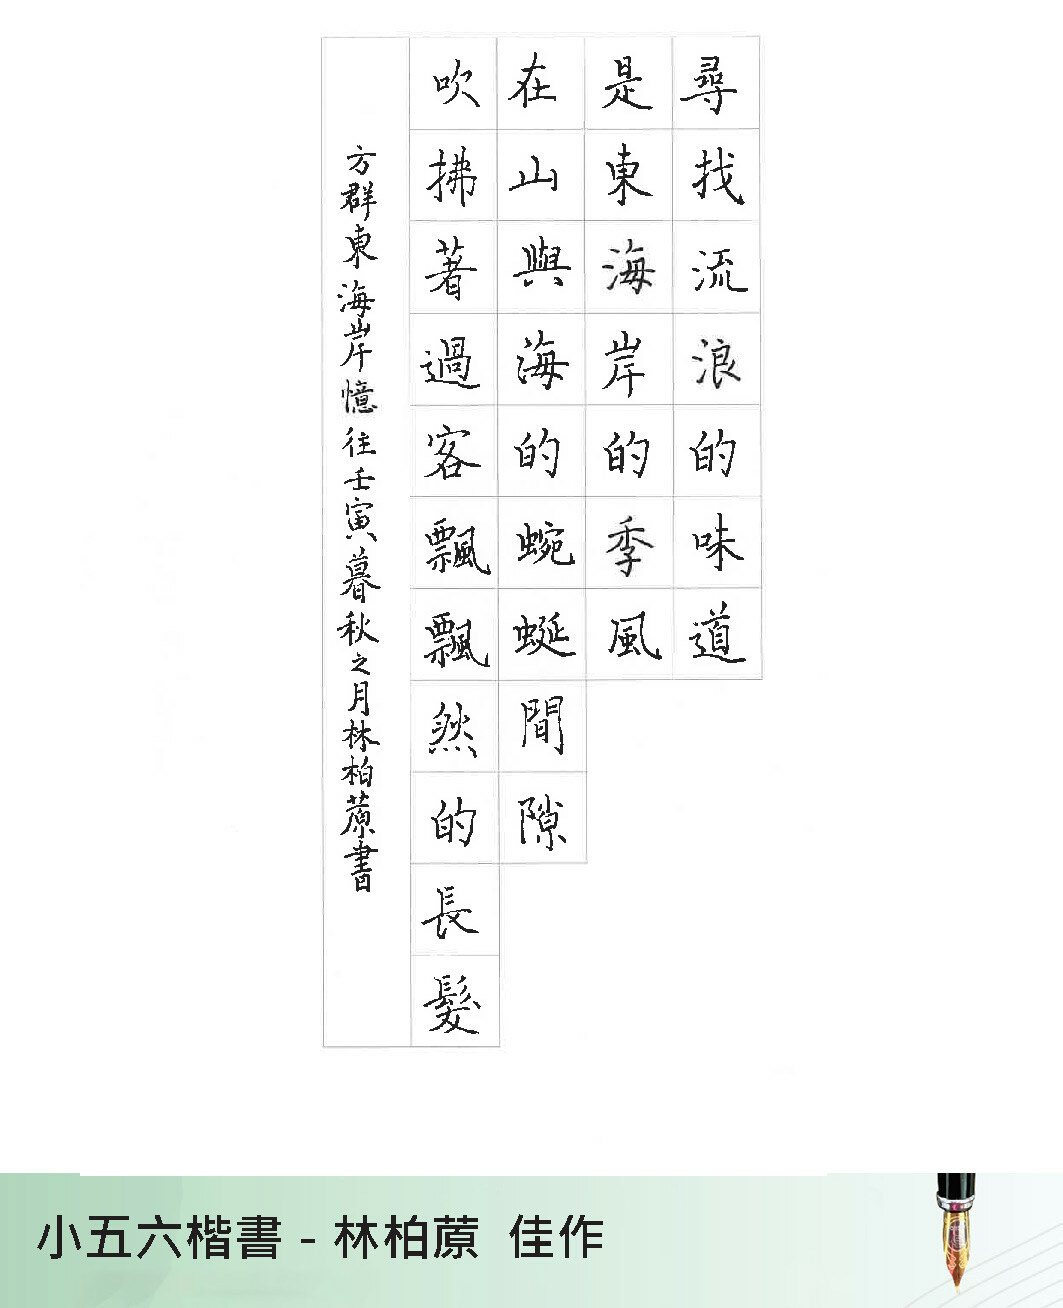 尋找流浪的味道
是東海岸的季風
在山與海的蜿蜒間隙
吹拂著過客飄飄然的長髮
方群東海岸憶往壬寅暮秋之月林柏蒝書
小五六楷書 - 林柏蒝 佳作